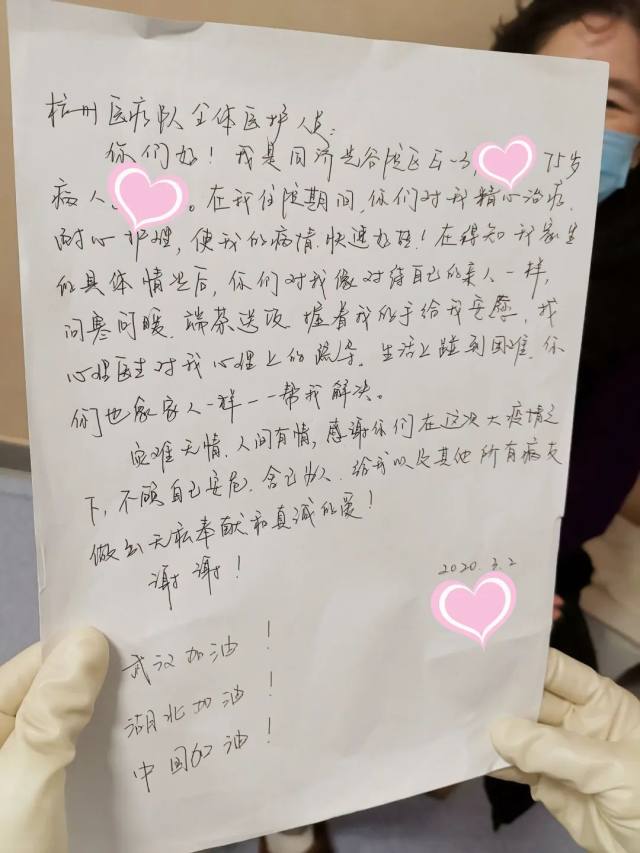 杭州医疗队全体医护人员:
你们好！我是同济光谷院区E1-3, 75岁
病人、。在我住院期间,你们对我精心治疗、
耐心护理,使我的病情快速好转！在得知我家里
的具体情况后,你们对我像对待自己的亲人一样,
问寒问暖、端茶送饭、握着我的手给我安慰,找
心理医生对我心理上的疏导。生活上碰到困难,你
们也象家人一样一一帮我解决。
灾难无情,人间有情,感谢你们在这次大疫情之
下,不顾自己安危、舍己为人,给我以及其他所有病友
做出无私奉献和真诚的爱！
谢谢！
2020.3.2
武汉加油！
湖北加油！
中国加油！